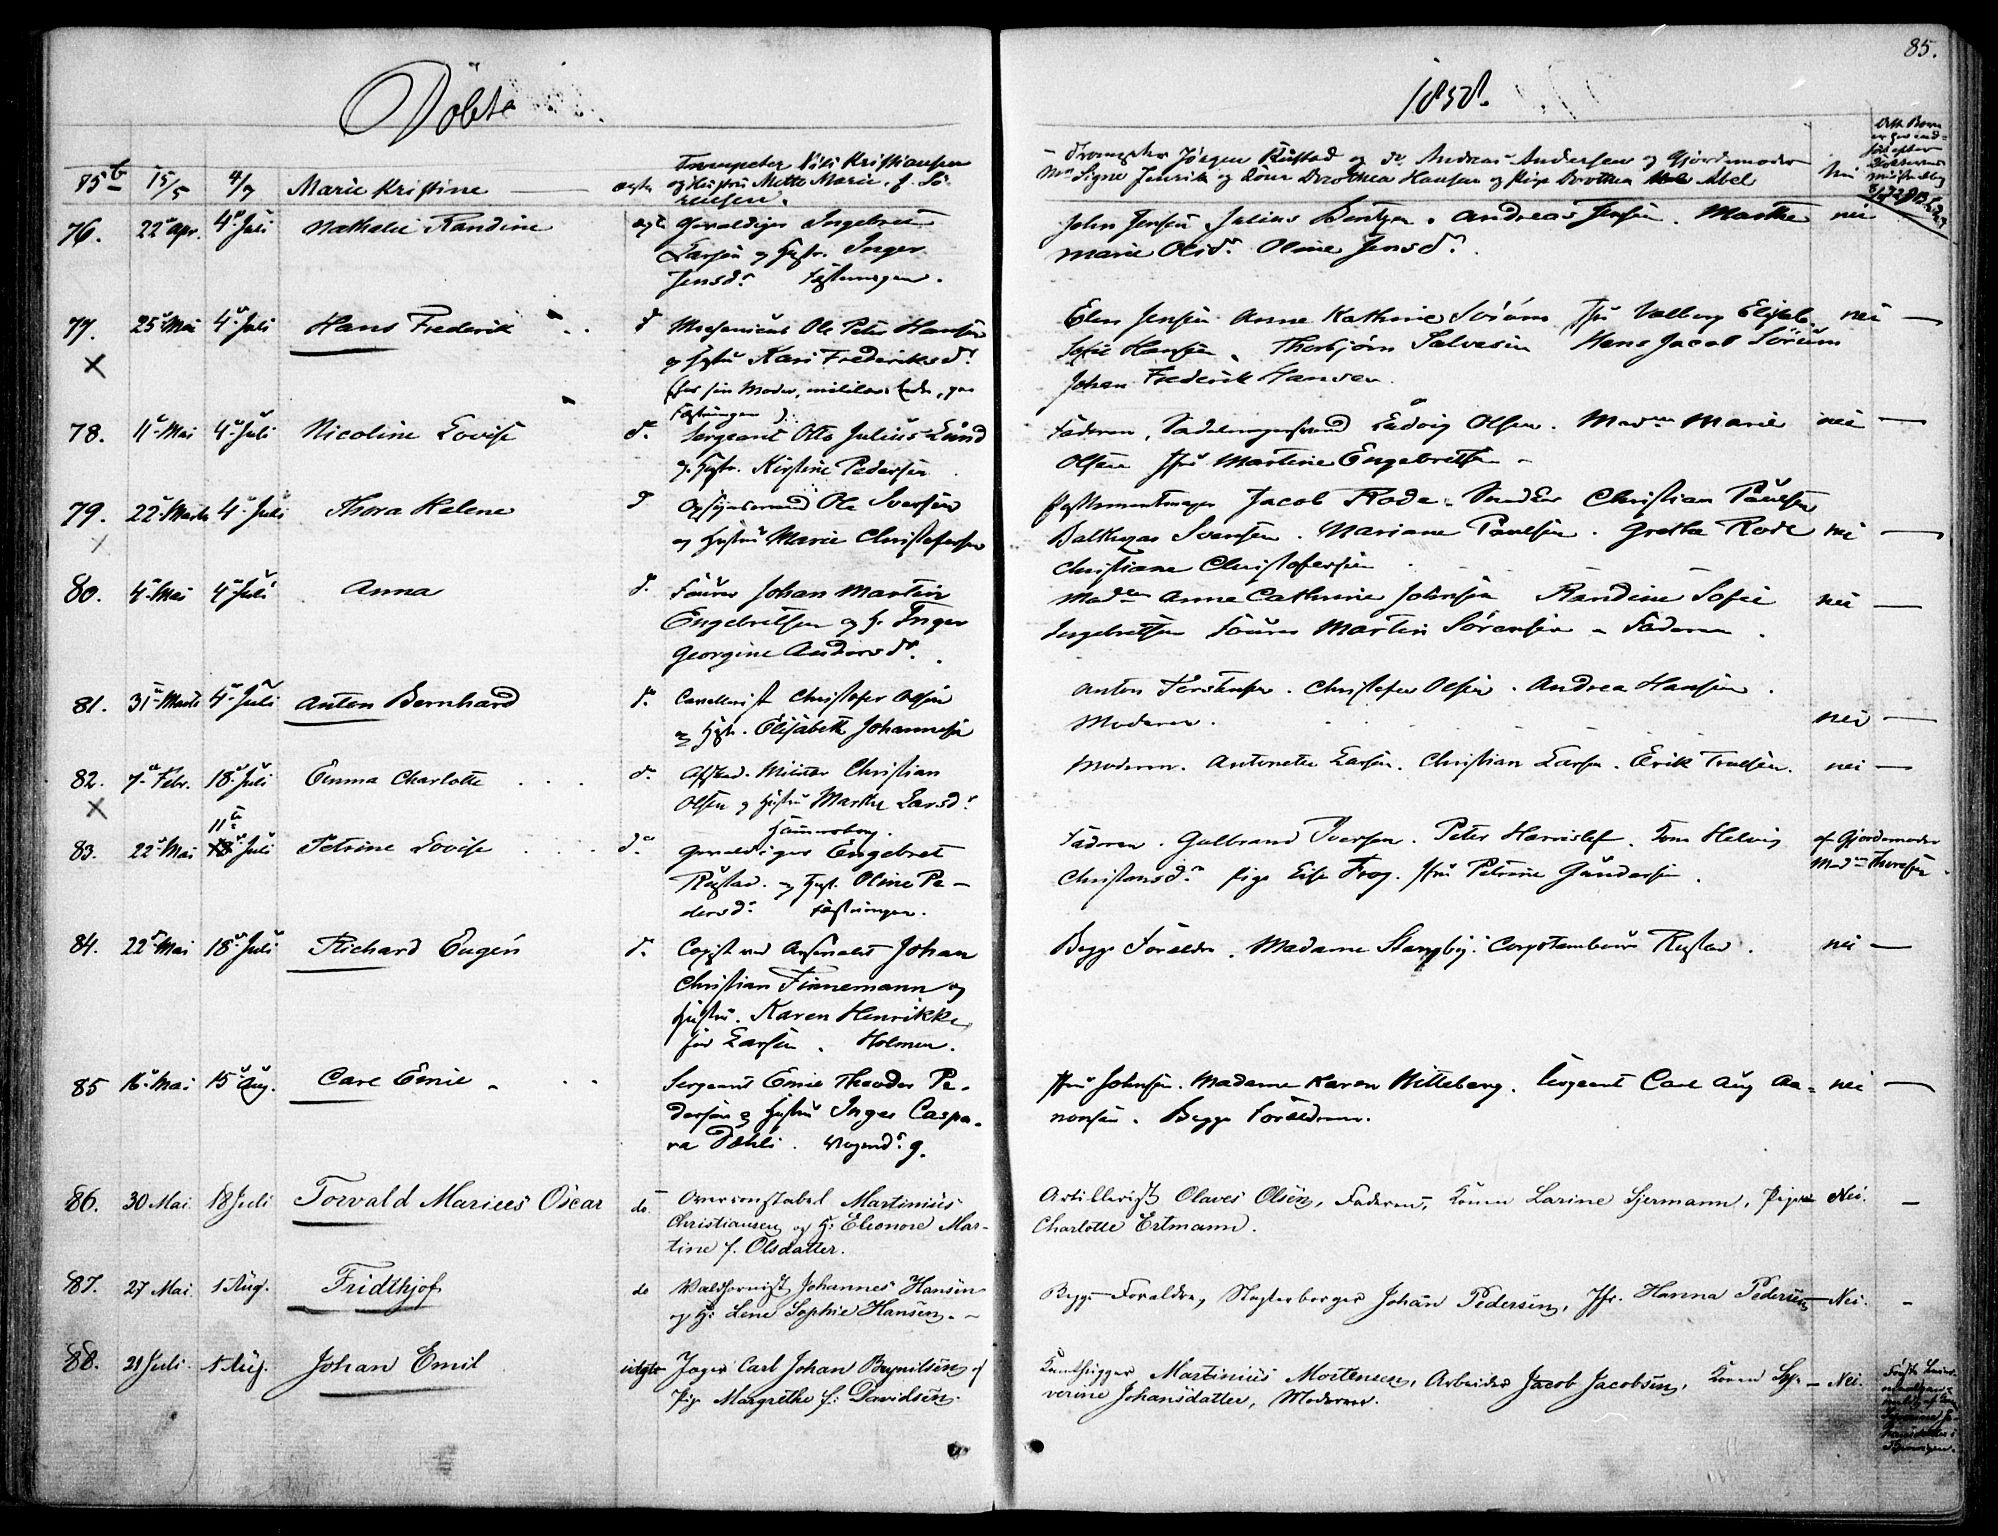 85.
Döbte
1858.
75b 15/5 4/7 Marie Kristine ægte Trompeter Nils Kristiansen
og Hustru Mette Marie, f. Sö-
rensen.
Trompeter Jörgen Rustad og do. Andreas Andersen og Gjordemoder
Signe og Kone Dorothea Hansen og Pige Dorothea Abel nei
76. 22 Apr. 4 Juli Nathalie Randine ægte Gevaldiger Ingebret
Larsen og Hustr. Inger
Jensdr. Fæstningen.
John Jensen Julius Berntzen. Andreas Jensen. Marthe nei
Marie Olsdr. Oline Jensdr.
77. 25 Mai 4 Juli Hans Frederik d Mechanicus Ole Peter Hansen
og Hustru Kari Frederiksdr.
(hos sin Moder, militær Enke, paa
Fæstningen).
Elen Jensen Anne Kathrine Sörum Jfr Valborg Elisab. nei —
Sofie Hansen. Thorbjörn Salvesen Hans Jacob Sörum
Johan Frederik Hansen.
78. 11 Mai 4 Juli Nicoline Lovise d. Sergeant Otto Julius Lund
og Hustr. Kirstine Pedersen
Faderen, Ludvig Olsen. Madm Marie nei —
Olsen Jfr Martine Engebretsen
79. 22 Marts 4 Juli Thora Helene d Opsynsmand Ole Svensen
og Hustru Marie Christofersen
Jacob Rode. Christian Paulsen
Balthazar Svensen. Mariane Paulsen. Grethe Rode nei —
Christiane Christofersen
80. 4 Mai 4 Juli Anna d. Fourer Johan Martin
Engebretsen og H. Inger
Georgine Andersdr.
Madm Anne Cathrine Johnsen Randine Sofie nei —
Ingebretsen Fourer Martin Sörensen Faderen.
81. 31 Marts 4 Juli Anton Bernhard d. Cavallerist Christofer Olsen
og Hustr. Elisabeth Johannesen
Anton. Christofer Olsen. Andrea Hansen.
Moderen. nei —
82. 7 Febr. 18 Juli Emma Charlotte d. Afsked. Militær Christian
Olsen og Hustru Marthe Larsdr.
Hammersborg.
Moderen. Antonette Larsen. Christian Larsen. Erik Truelsen. nei —
11
83. 22 Mai 18 Juli Petrine Lovise d. Gevaldiger Engebret
Rustad og Hust. Oline Pe-
dersdr. Fæstningen.
Faderen. Gulbrand Iversen. Peter Harrislef. Kone Helvig af Gjordemoder
Christensdr. Pige Elise Frog. Jfr Petrine Gundersen. Madm Thoresen
84. 22 Mai 18 Juli Richard Eugen d. Copist ved Arsenalet Johan
Christian Finnemann og
Hustru. Karen Henrikke
föd Larsen. Holmen.
Begge Forældre. Madame Slangby. Corpstambour Rustad. nei —
85 16 Mai 15 Aug. Carl Emil Sergeant Emil Theodor Pe-
dersen og Hustru Inger Caspa-
ra Dæhli. 9.
Jfr Johnsen. Madame Karen Witteberg. Sergeant Carl Aug Aa- nei —
nonsen. Begge Forældrene.
86. 30 Mai 18 Juli Torvald Marius Oscar do Overconstabel Martinius
Christiansen og H: Eleonore Mar-
tine f. Olsdatter.
Artillerist Olaves Olsen, Faderen, Konen Larine Sjermann, Pigen Nei. —
Charlotte Ertmann.
87. 27 Mai 1 Aug. Fridthjof do Valdhornist Johannes Hansen
og H: Lene Sophie Hansen.
Begge Forældre, Slagterborger Johan Pedersen, Jfr. Hanna Pedersen Nei. —
88. 21 Juli. 1 Aug. Johan Emil uægte Jæger Carl Johan Brynilsen og
Pige Margrethe f: Davidsen.
Martinius Mortensen, Arbeider Jacob Jacobsen, Konen Sy- Nei.
verine Johansdatter, Moderen.